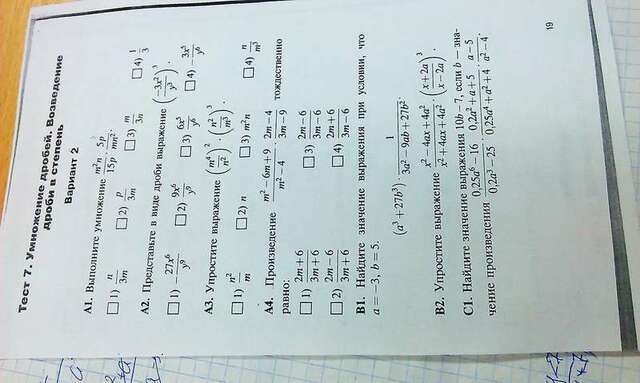 Тест 7. Умножение дробей. Возведение
дроби в степень
Вариант 2
А1. Выполните умножение m²n/15p · 5p/mn².
1) n/3m 2) p/3m 3) m/3n 4) 1/3
А2. Представьте в виде дроби выражение (−3x²/y³)³.
1) −27x⁶/y⁹ 2) 9x⁶/y⁹ 3) 6x⁵/y⁶ 4) −3x⁶/y⁶
А3. Упростите выражение (m⁴/n²)² · (n²/m³)³.
1) n²/m 2) n 3) m²n 4) n/m³
А4. Произведение m²−6m+9/m²−4 · 2m−4/3m−9 тождественно
равно:
1) 2m+6/3m+6 3) 2m−6/3m−6
2) 2m−6/3m+6 4) 2m+6/3m−6
В1. Найдите значение выражения при условии, что
a = −3, b = 5.
(a³+27b³) · 1/3a²−9ab+27b²
В2. Упростите выражение x²−4ax+4a²/x²+4ax+4a² · (x+2a/x−2a)³.
С1. Найдите значение выражения 10b−7, если b — зна-
чение произведения 0,25a⁶−16/0,2a²−25 · 0,2a²+a+5/0,25a⁴+a²+4 · a−5/a²−4.
19